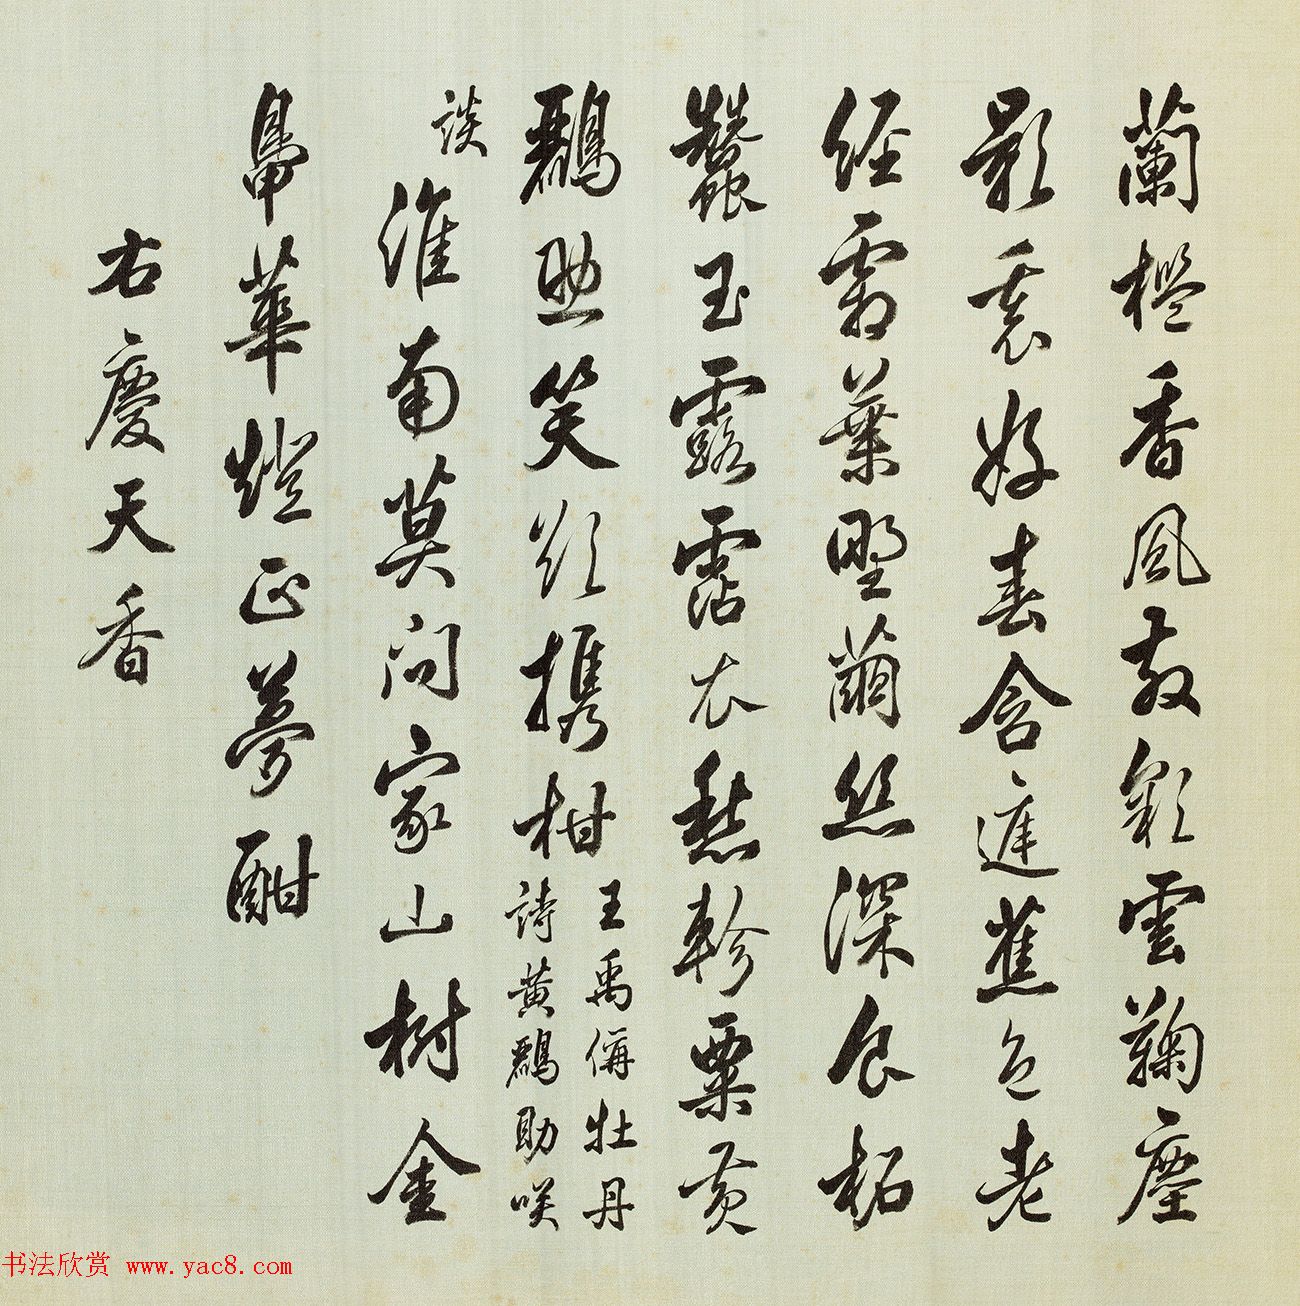 蘭檻香風散彩雲鞠塵
影裏好春含遲蕉色老
經霜葉野繭絲深食柘
蠶玉露霑衣愁軫粟黄
鸝助笑欲携柑
王禹偁牡丹
詩黄鸝助咲
談
淮南莫問家山樹金
鳧華燈正夢酣
右慶天香
书法欣赏 www.yac8.com